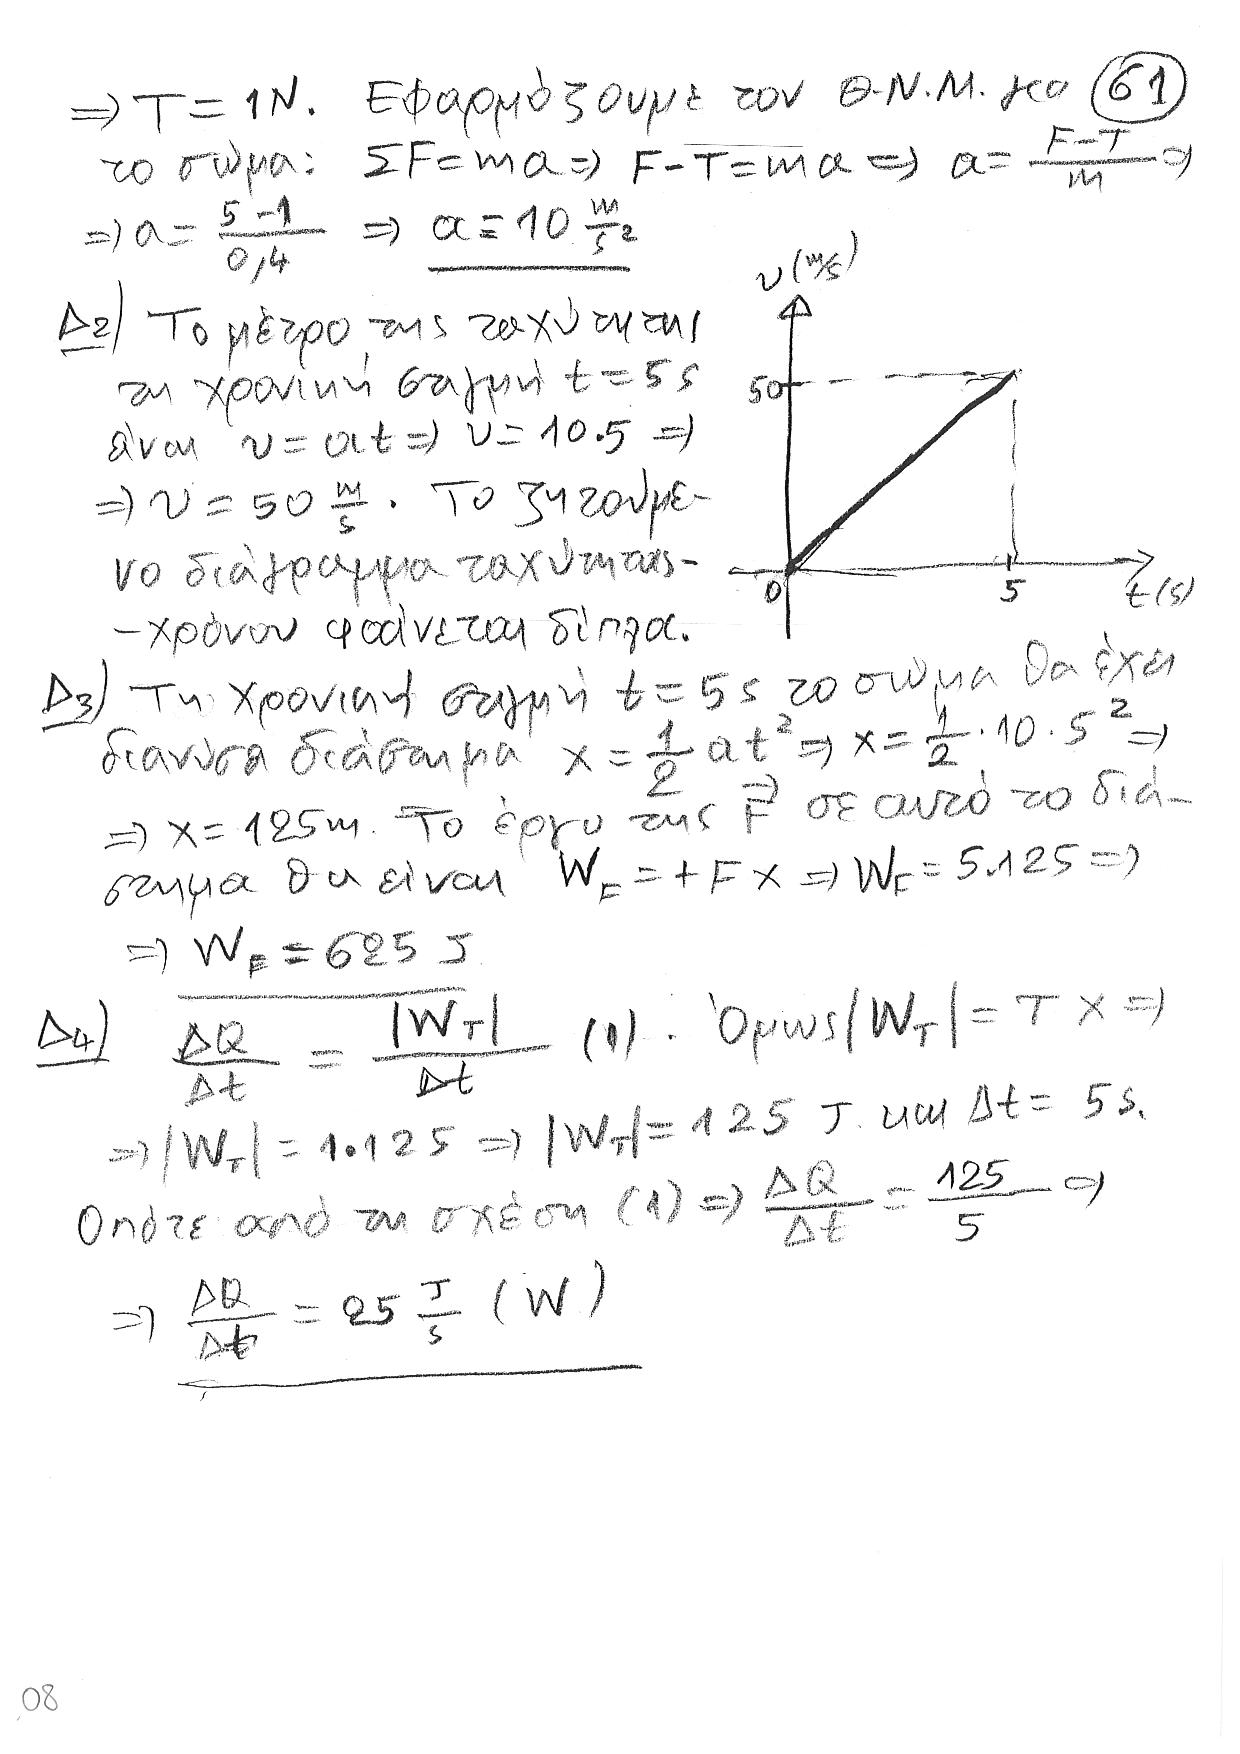 ⇒ T = 1N. Εφαρμόζουμε τον Θ.Ν.Μ. για 61
το σώμα: ΣF = ma ⇒ F - T = ma ⇒ a = (F-T)/m ⇒
⇒ a = (5-1)/0,4 ⇒ a = 10 m/s²
Δ2) Το μέτρο της ταχύτητας
τη χρονική στιγμή t = 5s
είναι υ = at ⇒ υ = 10.5 ⇒
⇒ υ = 50 m/s. Το ζητούμε-
νο διάγραμμα ταχύτητας-
-χρόνου φαίνεται δίπλα.
υ (m/s)
50
0
5
t (s)
Δ3) Τη χρονική στιγμή t = 5s το σώμα θα έχει
διανύσει διάστημα x = 1/2 at² ⇒ x = 1/2 · 10 · 5² ⇒
⇒ x = 125m. Το έργο της F⃗ σε αυτό το διά-
στημα θα είναι W_F = + F x ⇒ W_F = 5.125 ⇒
⇒ W_F = 625 J
Δ4) ΔQ/Δt = |W_T|/Δt (1). Όμως |W_T| = T x ⇒
⇒ |W_T| = 1·125 ⇒ |W_T| = 125 J και Δt = 5s.
Οπότε από τη σχέση (1) ⇒ ΔQ/Δt = 125/5 ⇒
⇒ ΔQ/Δt = 25 J/s (W)
08